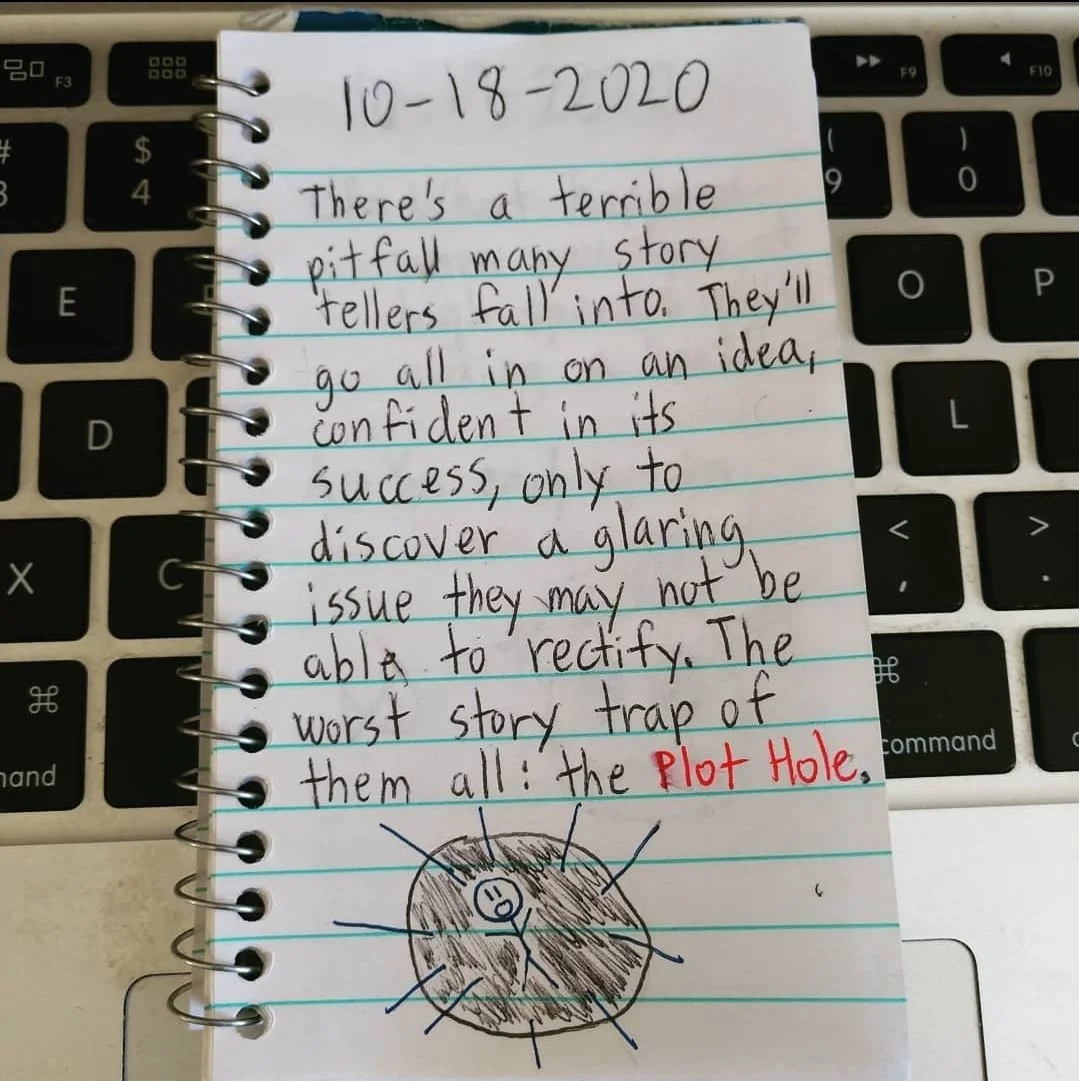 10-18-2020
There's a terrible
pitfall many story
tellers fall into. They'll
go all in on an idea,
confident in its
success, only to
discover a glaring
issue they may not be
able to rectify. The
worst story trap of
them all: the Plot Hole.
F3
F9
F10
#
3
$
4
(
9
)
0
E
O
P
D
L
X
C
<
,
>
.
⌘
⌘
command